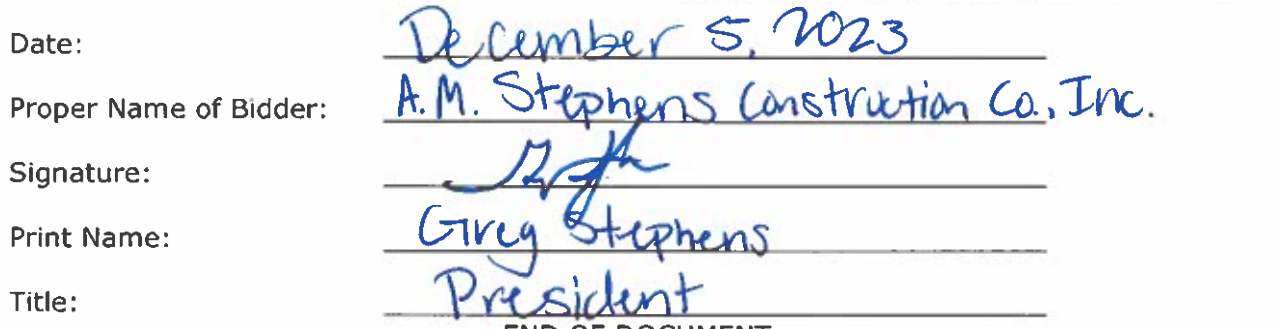 Date: December 5, 2023
Proper Name of Bidder: A.M. Stephens Construction Co., Inc.
Signature:
Print Name: Greg Stephens
Title: President
END OF DOCUMENT